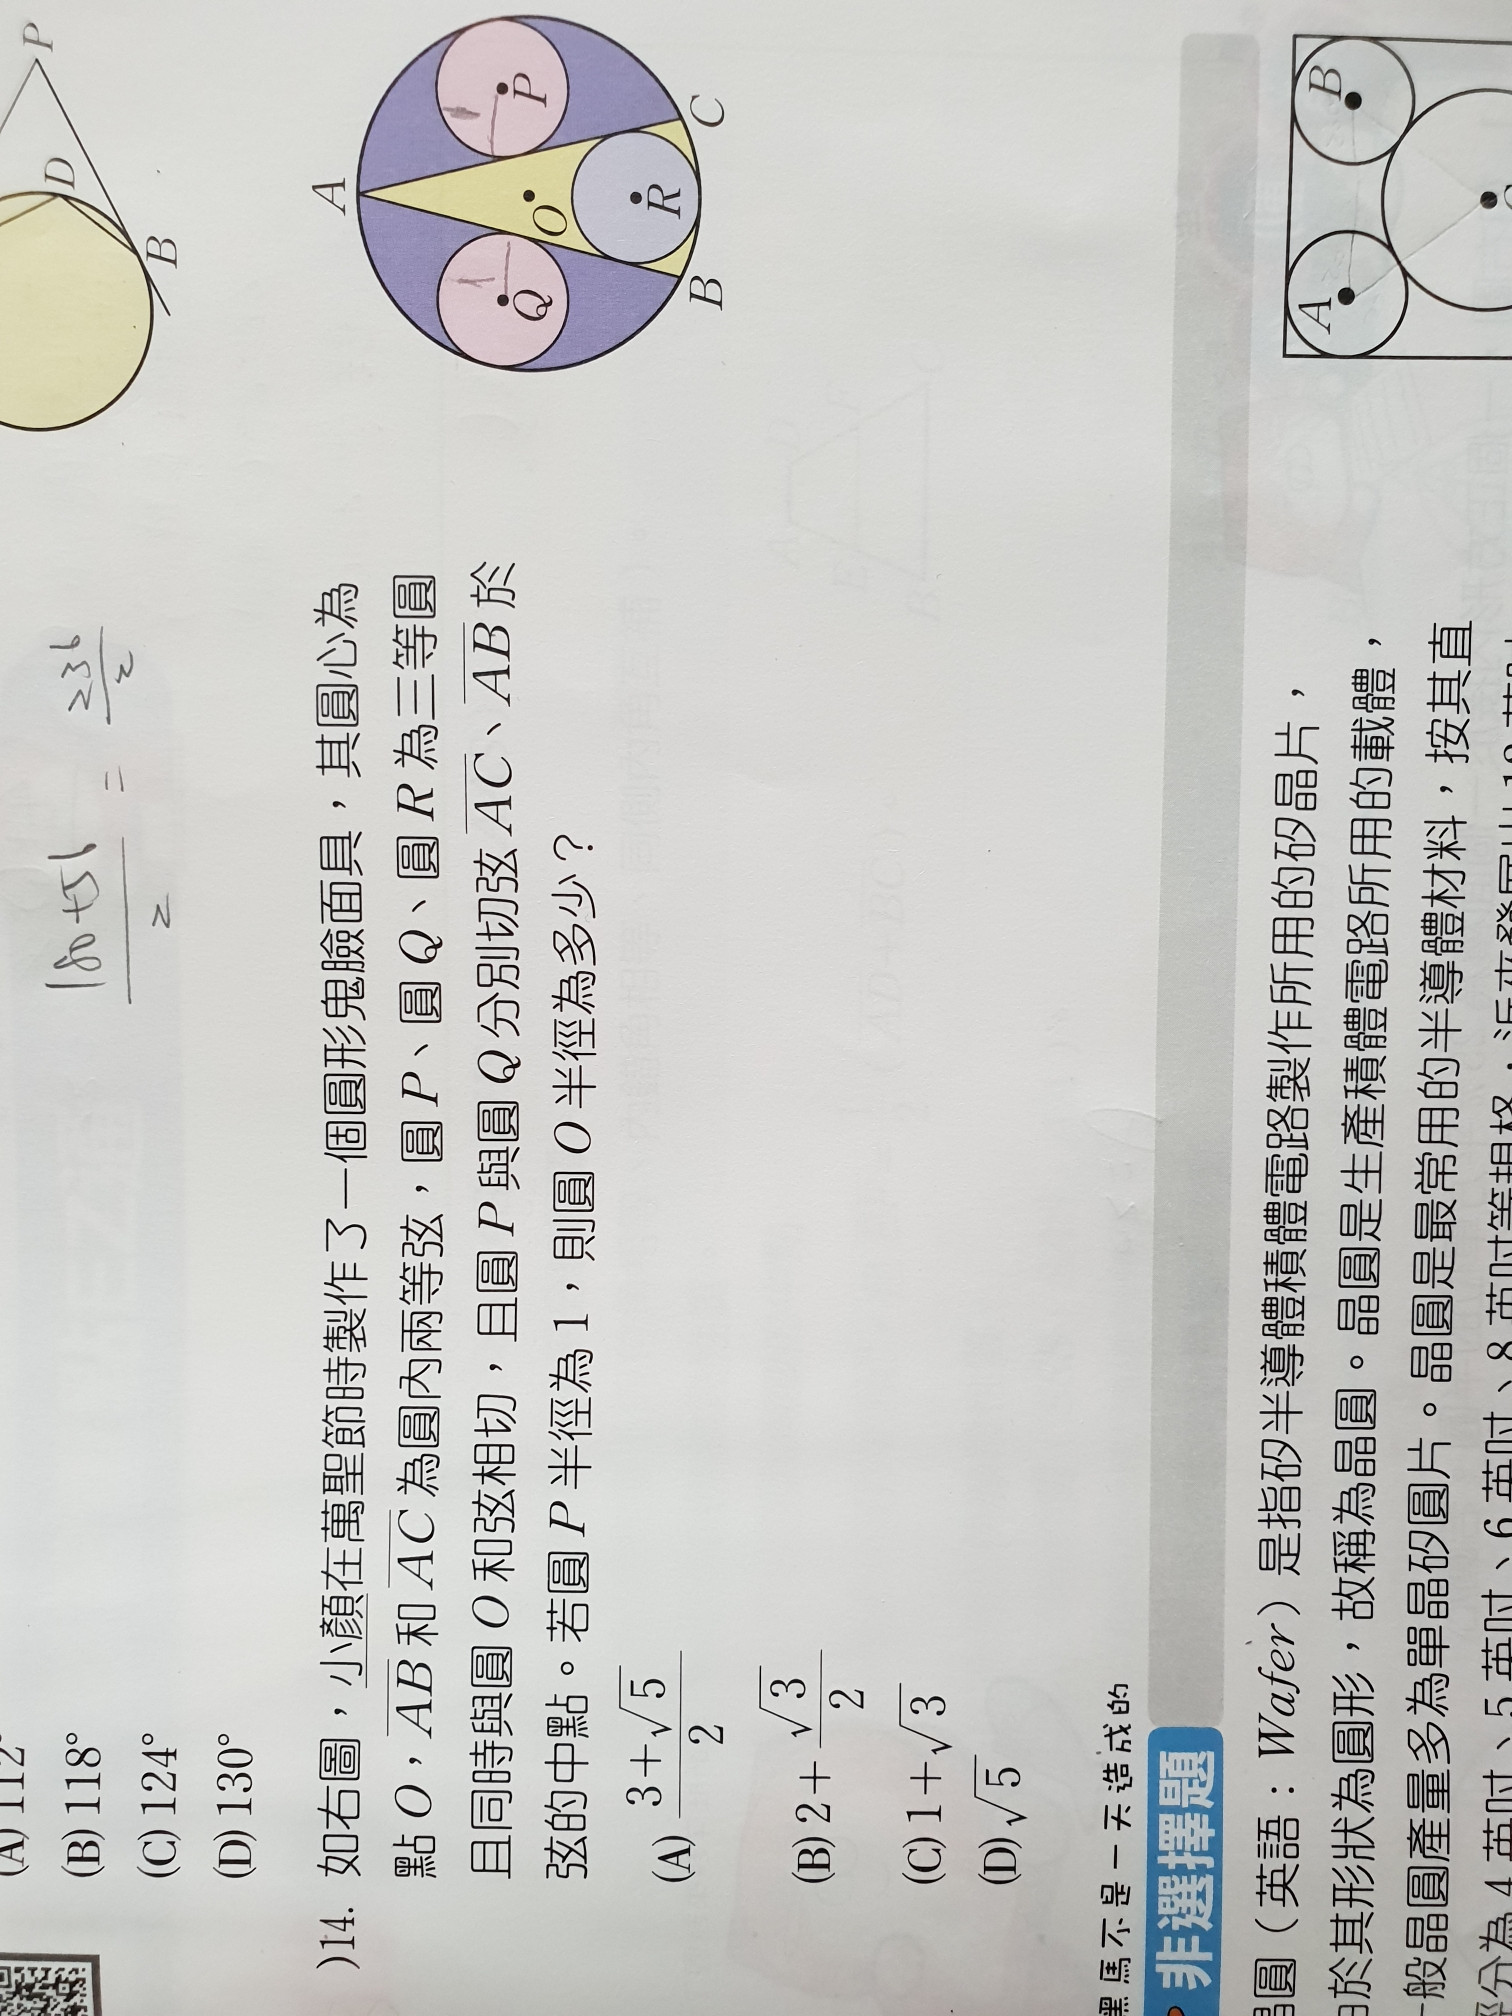 (A) 112°
(B) 118°
(C) 124°
(D) 130°
180+56
2
=
236
2
P
D
B
)14. 如右圖，小顏在萬聖節時製作了一個圓形鬼臉面具，其圓心為
點 O，AB 和 AC 為圓內兩等弦，圓 P、圓 Q、圓 R 為三等圓
且同時與圓 O 和弦相切，且圓 P 與圓 Q 分別切弦 AC、AB 於
弦的中點。若圓 P 半徑為 1，則圓 O 半徑為多少？
(A) 3+√5
2
(B) 2+ √3
2
(C) 1+√3
(D) √5
A
Q
O
P
R
B
C
黑馬不是一天造成的
非選擇題
圓（英語：Wafer）是指矽半導體積體電路製作所用的矽晶片，
於其形狀為圓形，故稱為晶圓。晶圓是生產積體電路所用的載體，
般晶圓產量多為單晶矽圓片。晶圓是最常用的半導體材料，按其直
分為 4 英吋、5 英吋、6 英吋、8 英吋等規格，近來發展出 12 英吋
A
B